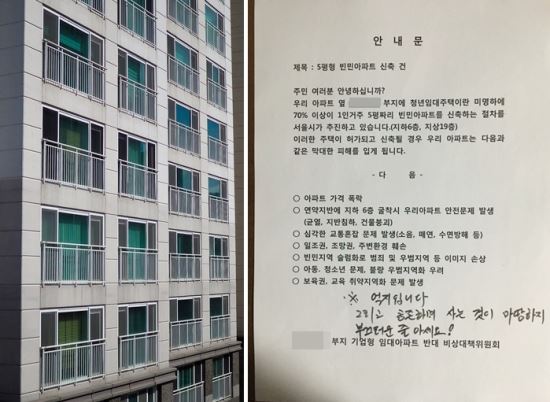 안 내 문
제목 : 5평형 빈민아파트 신축 건
주민 여러분 안녕하십니까?
우리 아파트 옆 부지에 청년임대주택이란 미명하에
70% 이상이 1인거주 5평짜리 빈민아파트를 신축하는 절차를
서울시가 추진하고 있습니다.(지하6층, 지상19층)
이러한 주택이 허가되고 신축될 경우 우리 아파트는 다음과
같은 막대한 피해를 입게 됩니다.
- 다 음 -
○ 아파트 가격 폭락
○ 연약지반에 지하 6층 굴착시 우리아파트 안전문제 발생
(균열, 지반침하, 건물붕괴)
○ 심각한 교통혼잡 문제 발생(소음, 매연, 수면방해 등)
○ 일조권, 조망권, 주변환경 훼손
○ 빈민지역 슬럼화로 범죄 및 우범지역 등 이미지 손상
○ 아동, 청소년 문제, 불량 우범지역화 우려
○ 보육권, 교육 취약지역화 문제 발생
※ 억지입니다
그리고 공존하며 사는 것이 마땅하지
부끄러운 줄 아세요!
부지 기업형 임대아파트 반대 비상대책위원회